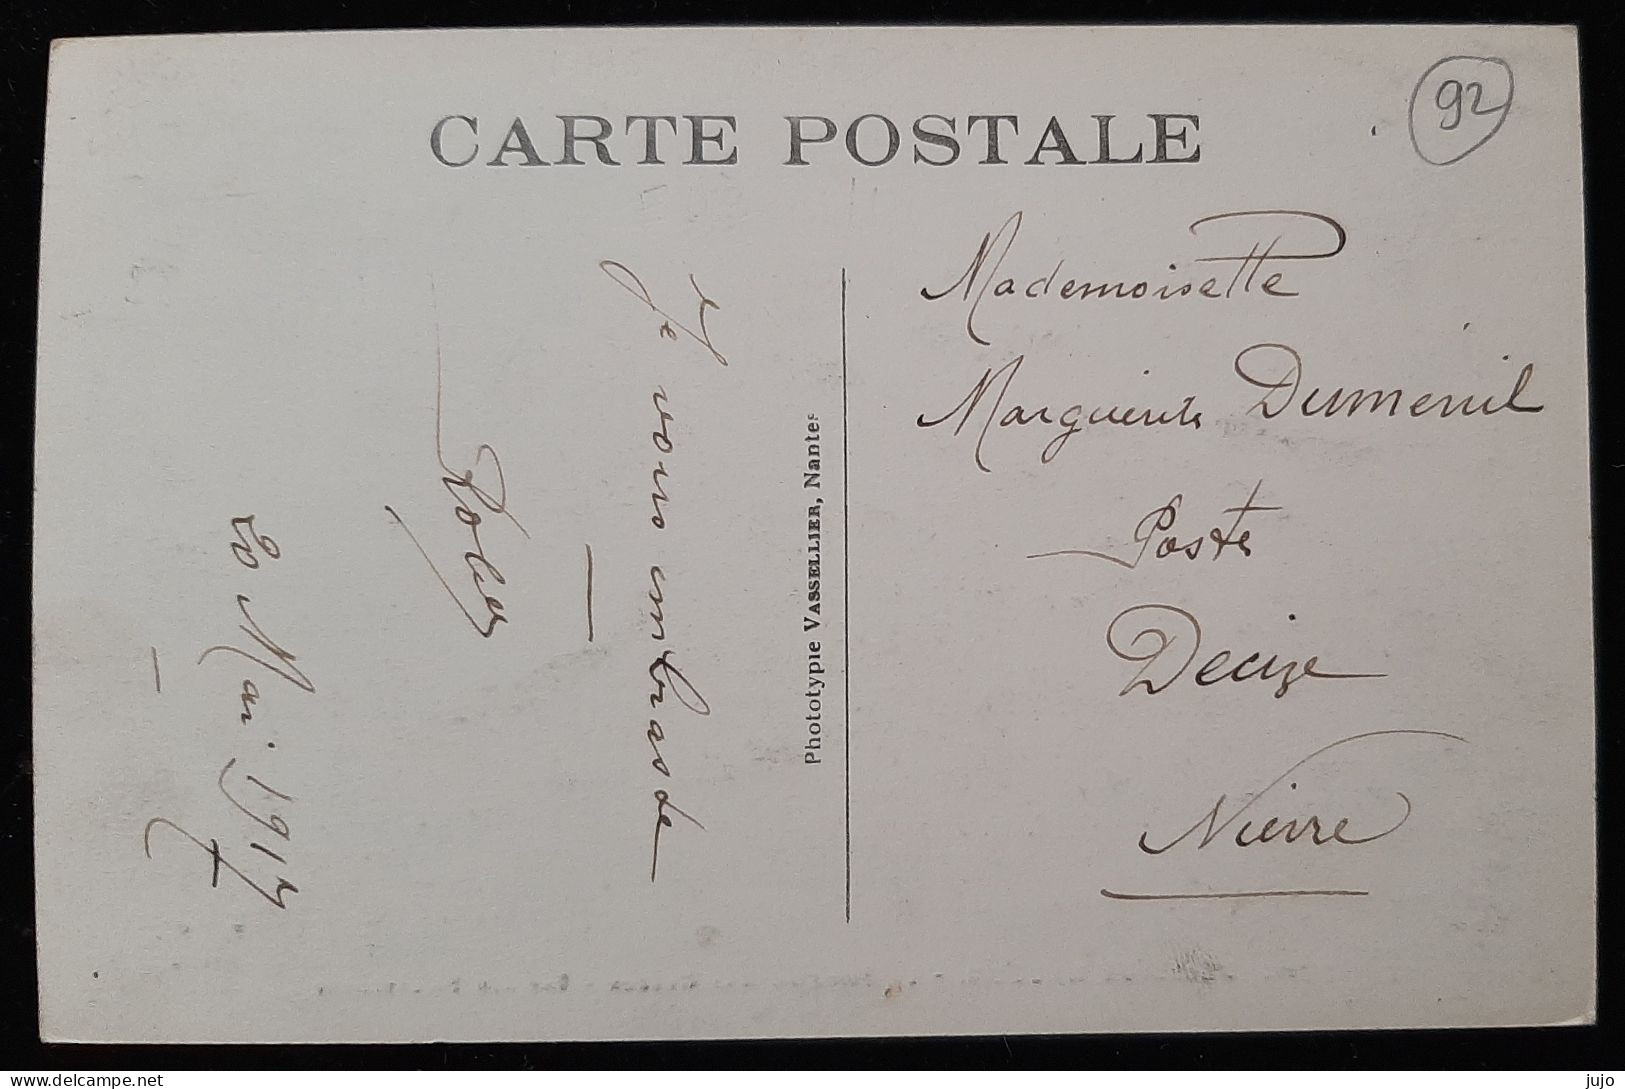 CARTE POSTALE
92
Je vous embrasse
20 Mai 1917
Phototypie VASSELLIER, Nantes
Mademoiselle
Marguerite Dumenil
Poste
Decize
Nièvre
www.delcampe.net
jujo